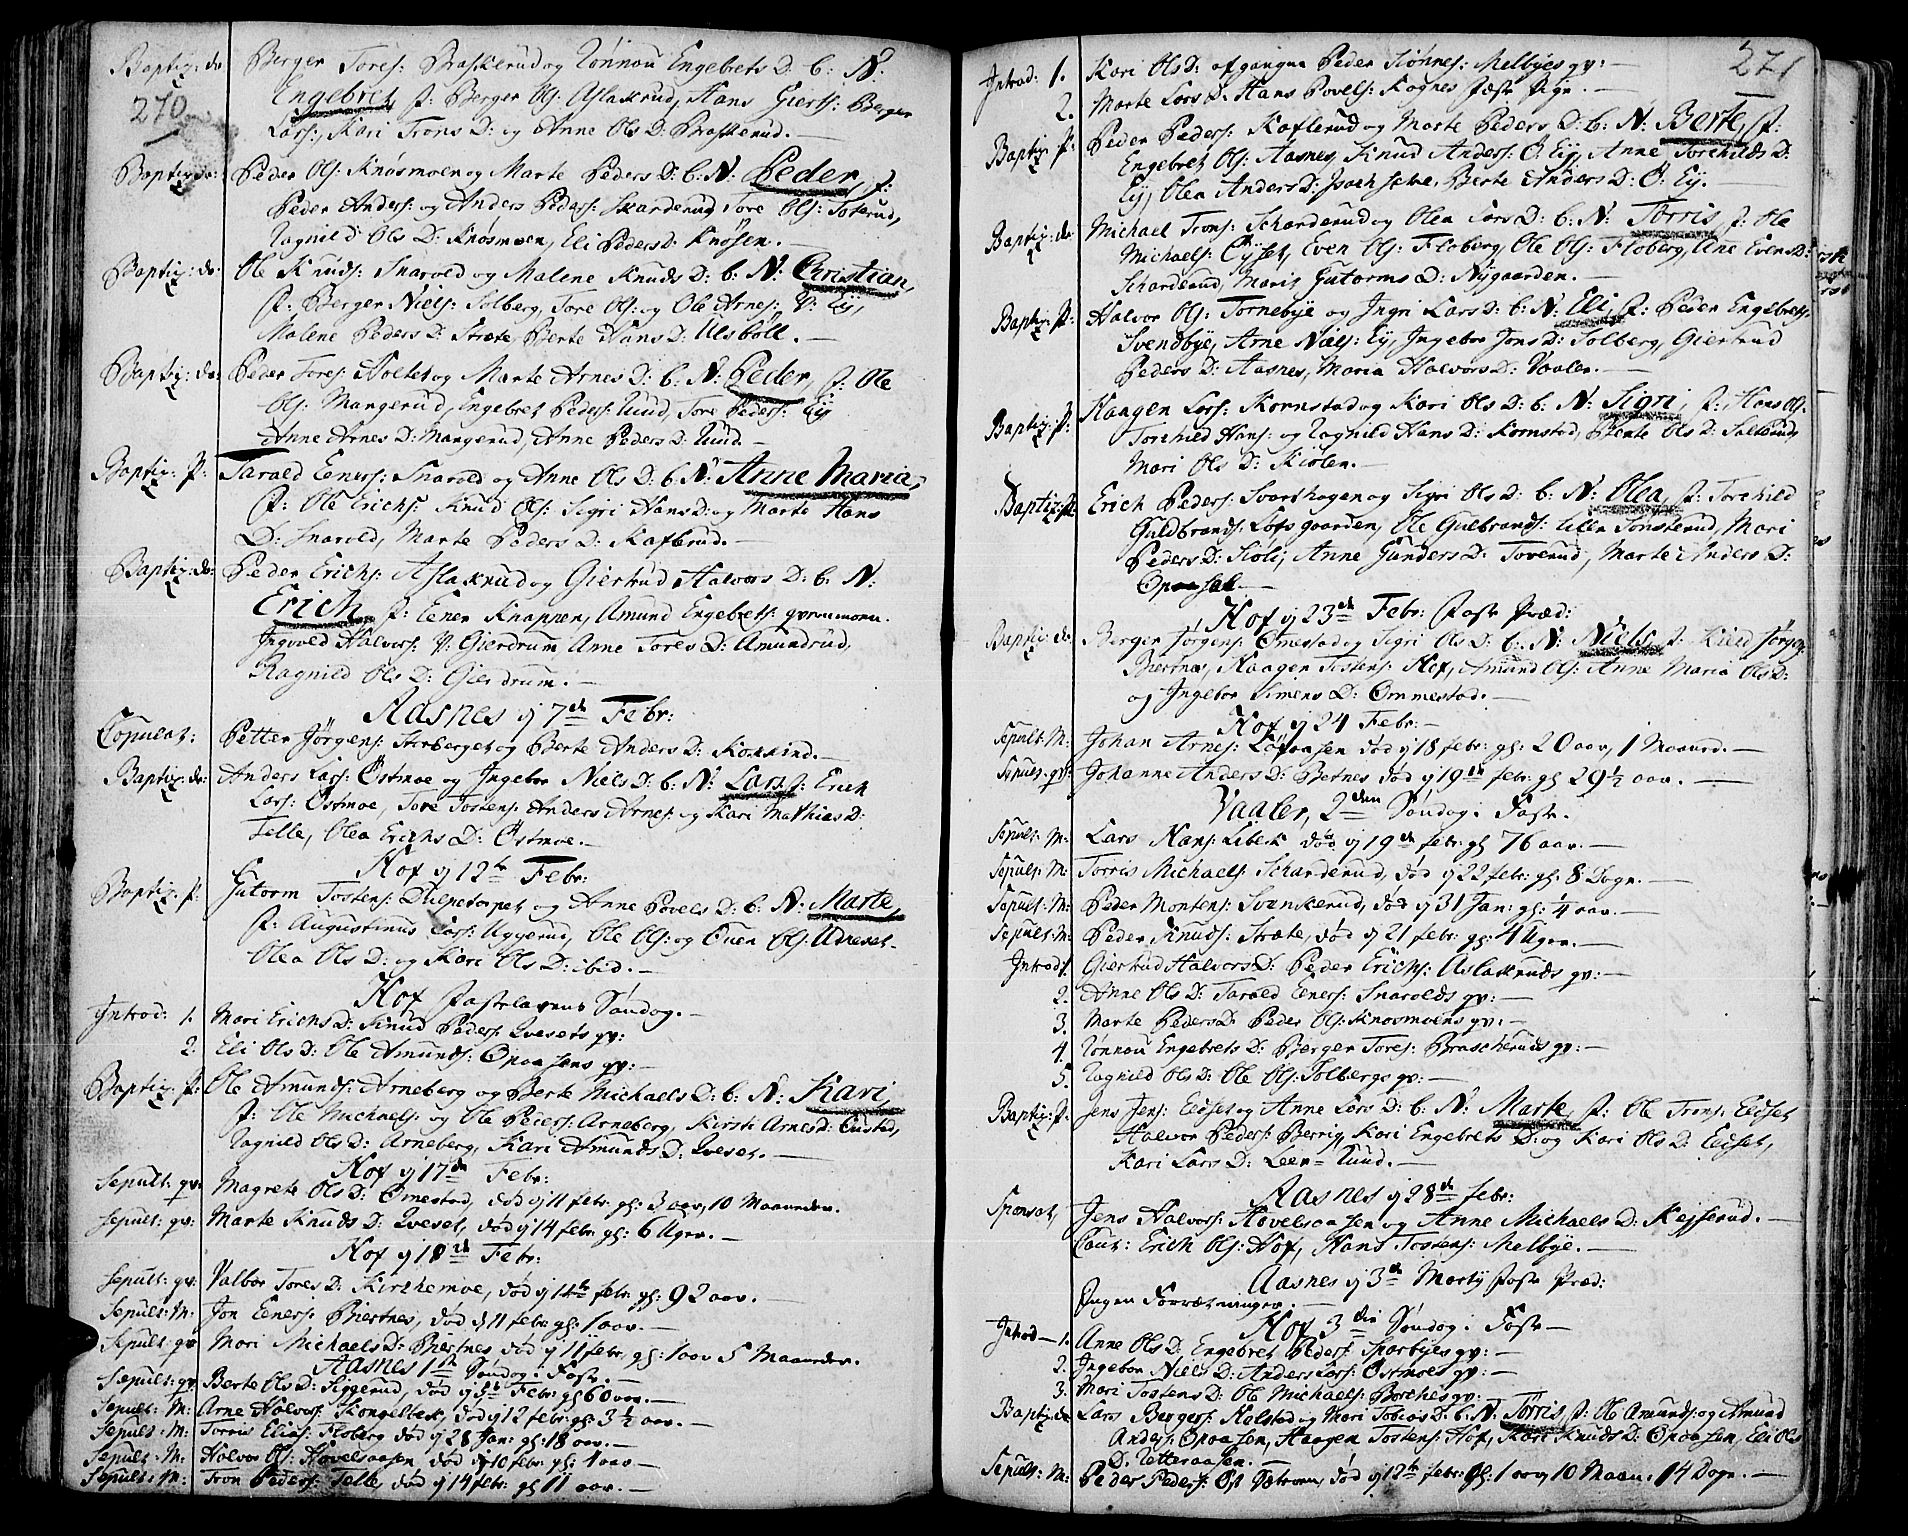 Baptiz: do Berger Tores: Braskerud og Rönnou Engebrets D: b: N:
270 Engebret, F: Berger Ols: Aslakrud, Hans Giertss: Berger
Lars:, Kari Trons D: og Anne Ols D: Braskerud.—
Baptiz: do: Peder Ols: Knösmoen og Marte Peders D: b: N: Peder, f:
Peder Anders: og Anders Peders: Skarderud Tore Ols: Soterud,
Ragnild Ols D: Knösmoen, Eli Peders D: Knösen.—
Baptiz: do: Ole Knuds: Snarold og Malene Knuds D: b: N: Christian,
f: Berger Niels: Solberg, Tore Ols: og Ole Arnes: V: Eij,
Malene Peders D: Stræte, Berte Hans D: Ulsböll.—
Baptiz: do: Peder Tores: Noltet og Marte Arnes D: b: N: Peder, f: Ole
Ols: Mangerud, Engebret Peders: Ruud, Tore Peders: Eij
Anne Arnes D: Mangerud, Anne Peders D: Ruud.—
Baptiz: f: Tarald Eeners: Snarold og Anne Ols D: b: N: Anne Maria,
f: Ole Erichs: Knud Ols: Sigri Hans D: og Marte Hans
D: Snarold, Marte Peders D: Kaflerud.—
Baptiz: do: Peder Erichs: Aslakrud og Giertrud Halvors D: b: N:
Erich, f: Eener Knappen, Amund Engebrets:
Ingvold Halvors: V: Gierdrum Anne Tores D: Amundrud,
Ragnild Ols D: Gierdrum.—
Aasnes ij 7de Febr:
Copulat: Petter Jörgens: Storberget og Berte Anders D: .—
Baptiz: do: Anders Lars: Östmoe og Ingebor Niels D: b: N: Lars, f: Erich
Lars: Östmoe, Tore Tostens: Anders Arnes: og Kari Mathias D:
Telle, Olea Erichs D: Östmoe.—
Hof ij 12te Febr:
Baptiz: f: Gutorm Tostens: Dulpetorpet og Anne Povels D: b: N: Marte,
f: Augustinus Lars: Uggerud, Ole Ols: og Even Ols: Udneset.
Olea Ols D: og Kari Ols D: ibid.—
Hof Fastelavens Söndag.—
Introd: 1. Mari Erichs D: Knud Peders: Qvesets qv:
2. Eli Ols D: Ole Amunds: Opaasens qv:—
Baptiz: f: Ole Amunds: Arneberg og Berte Michaels D: b: N: Kari,
f: Ole Michaels: og Ole Peders: Arneberg, Kirsti Arnes D: Enstad,
Ragnild Ols D: Arneberg, Kari Amunds D: Qveset.—
Hof ij 17de Febr:
Sepult: qv: Magrete Ols D: Omestad, död ij 11 febr: gl: 3 aar, 10 Maaneder.
Sepult: qv: Marte Knuds D: Qveset, död ij 14 febr: gl: 6 Uger.—
Hof ij 18de Febr:
Sepult: qv: Valbor Tores D: Kirchemoe, död ij 14te febr: gl: 92 aar.—
Sepult: M: Jon Eeners: Biertnes, död ij 11 febr: gl: 1 aar.—
Sepult: qv Mari Michaels D: Biertnes död ij 11 febr: gl: 1 aar 5 Maaneder.
Aasnes 1ste Söndag i Faste.—
Sepult: qv Berte Ols D: Siggerud, död ij 5te Febr: gl 60 aar.—
Sepult: M: Arne Halvors: Kongeltræk, död ij 12 febr: gl: 3½ aar.—
Sepult: M: Torris Elias: Floberg död ij 28 Jan: gl: 18 aar.—
Sepult: M: Halvor Ols: Hovelsaasen död ij 10 febr: gl: 1 aar.—
Sepult: M: Tron Peders: Telle, död ij 14 febr: gl 11 aar.—
271
Introd: 1. Kari Ols D: afgangne Peder Siönnes: Melbyes qv:—
2. Marte Lars D: Hans Povels: Kognes Fæste Pige.—
Baptiz: f: Peder Peders: Kaflerud og Marte Peders D: b: N: Berte, f:
Engebret Ols: Aasnes, Knud Anders: O: Eij, Anne Torchilds D:
Eij, Olea Anders D: , Berte Anders D: O: Eij.—
Baptiz: do: Michael Trons: Scharderud og Olea Lars D: b: N: Torris, f: Ole
Michaels: Eyset, Even Ols: Floberg, Ole Ols: Floberg, Ane Evens D:
Scharderud, Maris Gutorms D: Nygaarden.—
Baptiz: f: Halvor Ols: Tornebye og Ingri Lars D: b: N: Eli, f: Peder Engebrets:
Svendbye, Arne Niels: Eij, Ingebor Jons D: Solberg, Giertrud
Peders D: Aasnes, Maria Halvors D: Vaaler.—
Baptiz: f: Haagen Lars: Kornstad og Kari Ols D: b: N: Sigri, f: Hans Ols:
Torchild Hans: og Ragnild Hans D: Kornstad, Berte Ols D: Salterud,
Mari Ols D: Kiölen.—
Baptiz: f: Erich Peders: Svartshagen og Sigri Ols D: b: N: Olea, f: Torchild
Guldbrands: Lotsgaarden, Ole Gulbrands: Lille Sönsterud, Mari
Peders D: Skoli, Anne Gunders D: Toverud, Marte Anders D:
Opaasen.—
Hof ij 23de Febr: Faste Præd:
Baptiz: do: Berger Jörgens: Omestad og Sigri Ols D: b: N: Niels, f: Kield Jörgens:
Biertnes, Haagen Tostens: Hof, Amund Ols: Anne Maria Ols D:
og Ingebor Simens D: Ommestad.—
Hof ij 24 Febr:—
Sepult: M: Johan Arnes: Löfaasen död ij 18 febr: gl: 20 aar, 1 Maaned.—
Sepult: qv: Johanne Anders D: Betnes död ij 19de febr: gl 29½ aar.—
Vaaler, 2den Söndag i Faste.
Sepult: M: Lars Hans: Libek död ij 19de febr: gl 76 aar.—
Sepult: M: Torris Michaels: Scharderud, död ij 22 febr: gl: 8 Dage.—
Sepult: M: Peder Mortens: Svenkerud, död ij 31 Jan: gl: 4 aar.—
Sepult: M: Peder Knuds: Stræte, död ij 21 febr: gl: 4 Uger.—
Introd: 1. Giertrud Halvors D: Peder Erichs: Aslakruds qv:—
2. Anne Ols D: Tarald Eeners: Snarolds qv:—
3. Marte Peders D: Peder Ols: Knösmoens qv:—
4. Rönnou Engebrets D: Berger Tores: Brascheruds qv:—
5. Ragnild Ols D: Ole Ols: Solbergs qv:—
Baptiz: f: Jens Jens: Eedset og Anne Lars D: b: N: Marte, f: Ole Trons: Eedset
Halvor Peders: Berrig, Kari Engebrets D: og Kari Ols D: Eedset,
Kari Lars D: Leer-Ruud.—
Aasnes ij 28de febr:
Sponsat, Jens Halvors: Hovelsaasen og Anne Michaels D: Kejserud.—
Caut: Erich Ols: Hof, Hans Tostens: Melbye.—
Aasnes ij 3de Martij Faste Præd:
Ingen Forretninger.—
Hof 3die Söndag i Faste—
Introd—1. Anne Ols D: Engebret Peders: Sparbyes qv:—
2. Ingebor Niels D: Anders Lars: Östmoes qv:—
3. Mari Tostens D: Ole Michaels: Borches qv:—
Baptiz: do Lars Bergers: Holstad og Mari Tobias D: b: N: Torris, f: Ole Amunds: og Amund
Anders: Opaasen, Haagen Tostens: Hof, Kari Knuds D: Opaasen, Eli Ols
D: Tetteraasen.—
Sepult: M: Peder Peders: , död ij 12te febr: gl: 1 aar, 10 Maan: 14 Dage.—